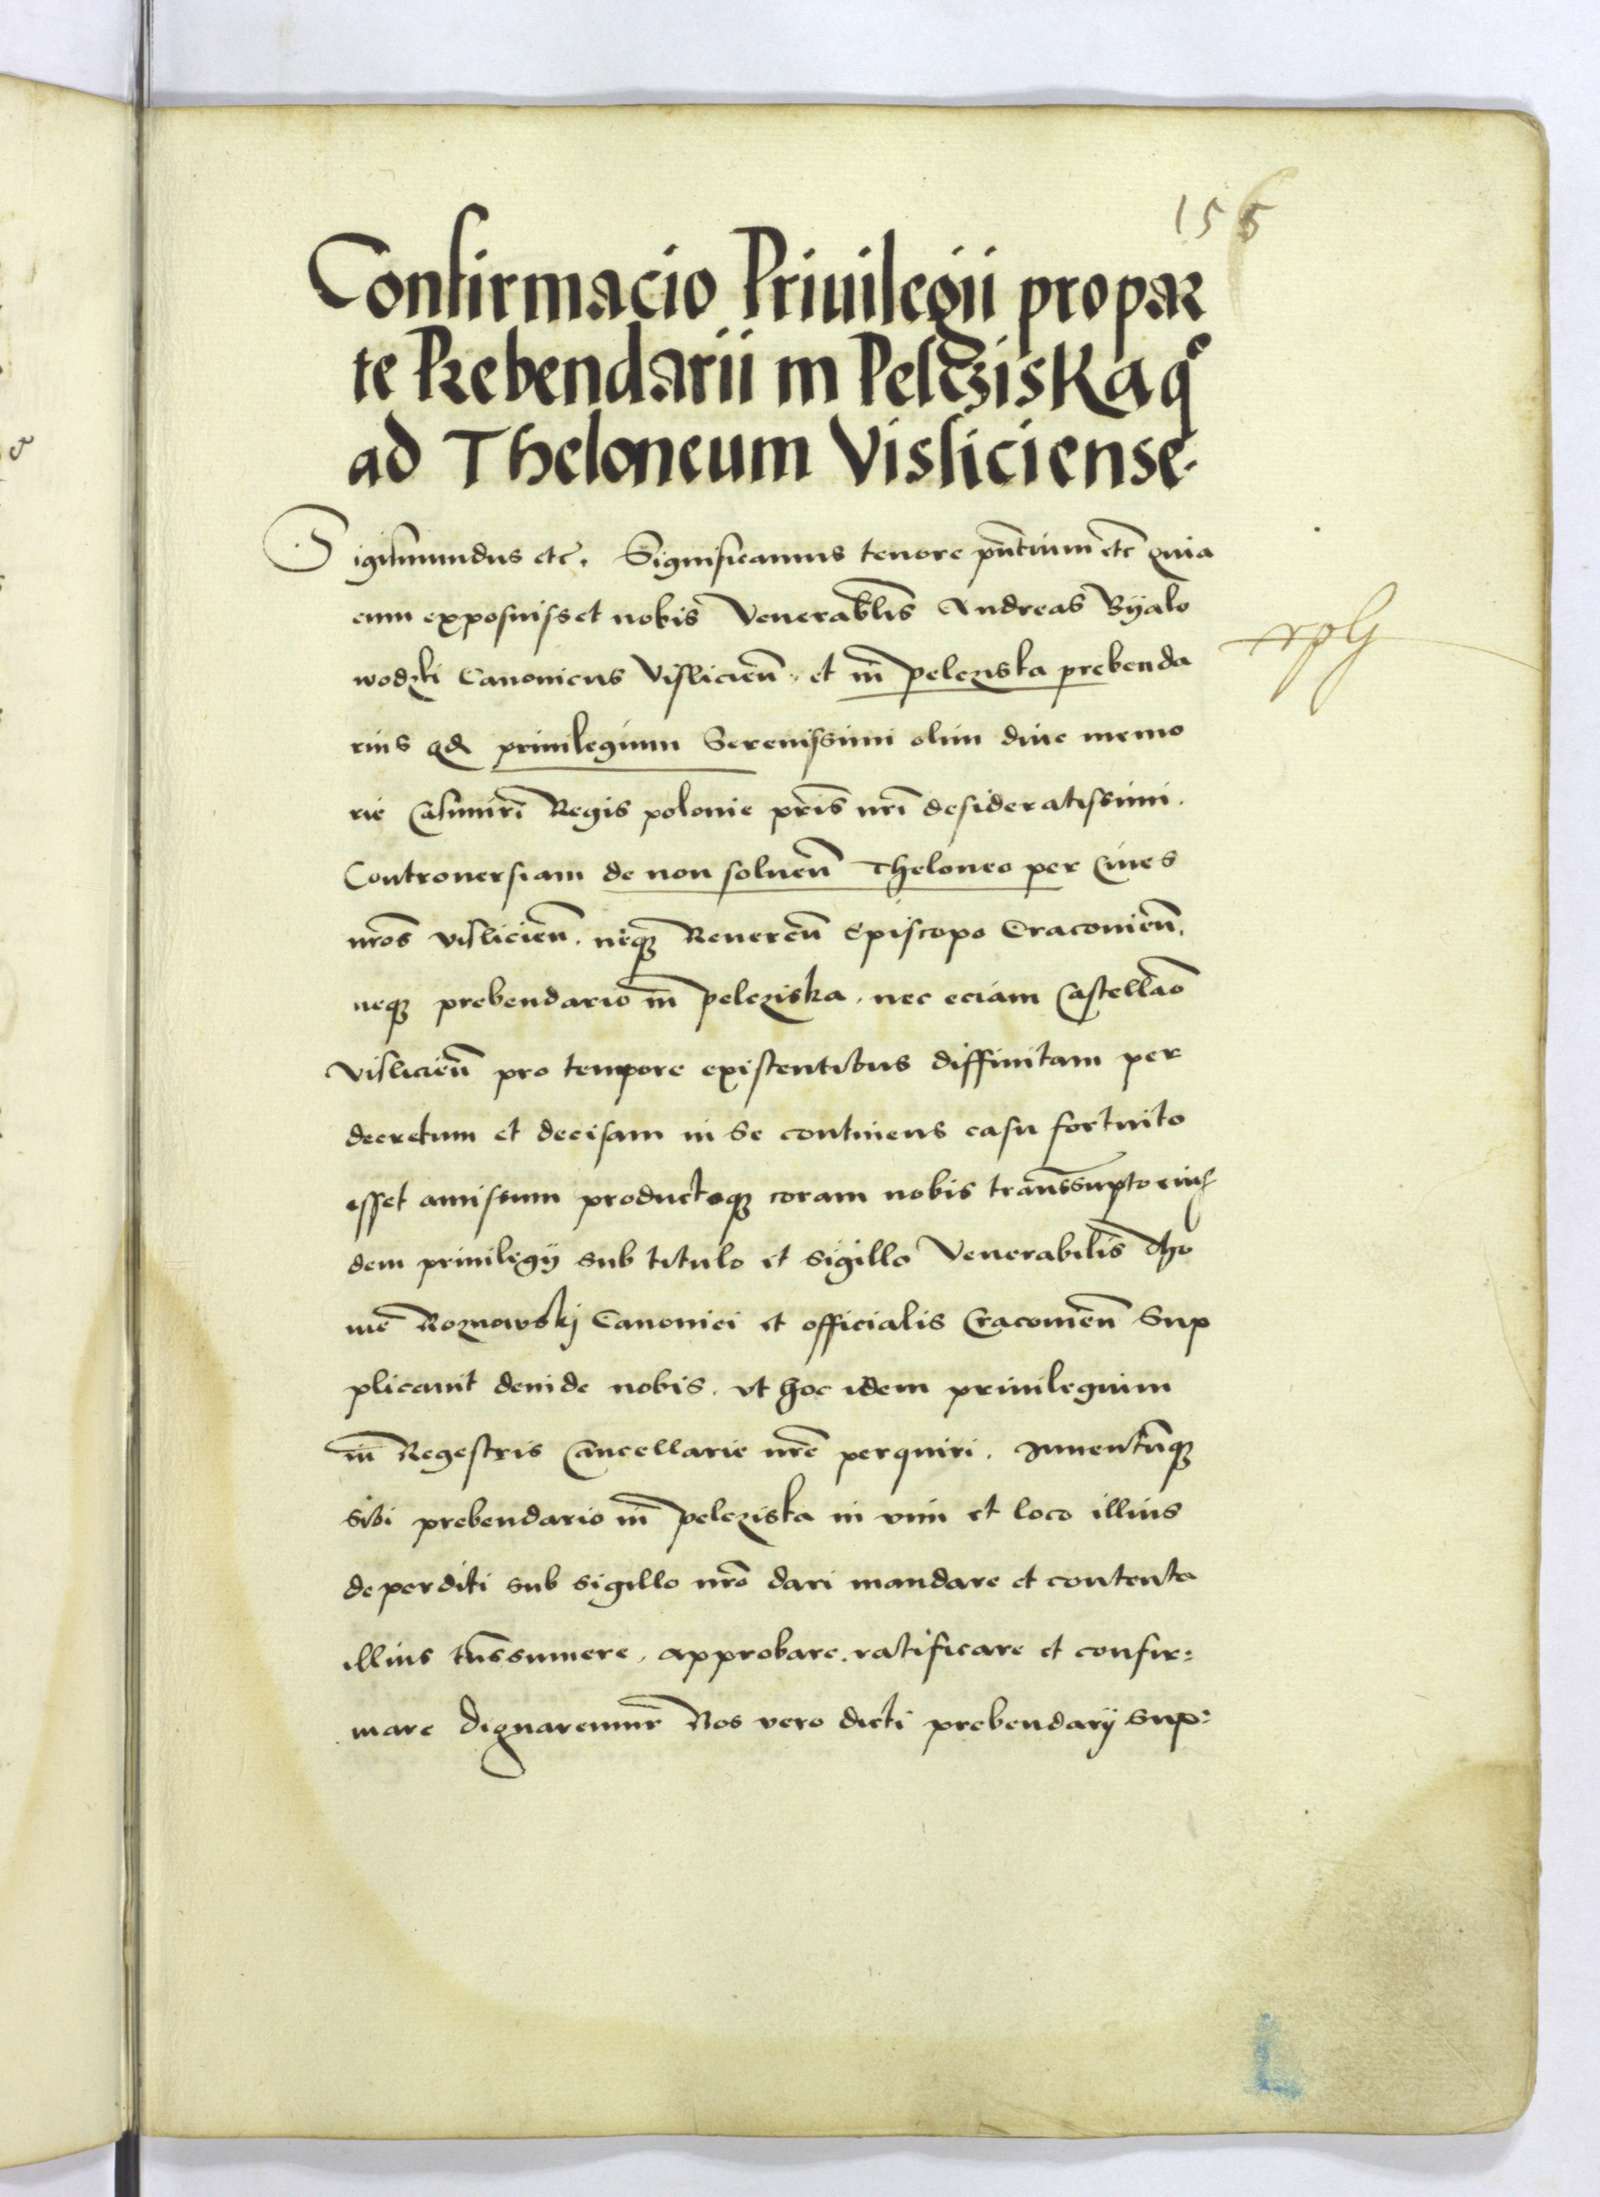 156
Confirmacio Priuilegii propar
te Prebendarii in Pelcziska q°
ad Theloneum Visliciense.
Sigismundus etc. Significamus tenore pñtium etc quia
cum exposuisset nobis Venerablis Andreas Byalo
wodzki Canonicus Visliciẽn. et in pelcziska prebenda
rius qd priuilegium Serenissimi olim diue memo
rie Casimiri Regis polonie pris nri desideratissimi.
Controuersiam de non soluen̄ Theloneo per Ciues
nros visliciẽn. neq̨ Reueren̄ Episcopo Cracouiẽn.
neq̨ prebendario in pelcziska. nec eciam Castellão
visliciẽn pro tempore existentibus diffinitam per
decretum et decisam in se continens casu fortuito
esset amissum productoq̨ coram nobis transsupto eius
dem priuilegij sub titulo et sigillo Venerabilis Tho
me Roznowskj Canonici et officialis Cracouiẽn Sup
plicauit deinde nobis. vt hoc idem priuilegium
in Regestris Cancellarie nrẽ perquiri. Inuentũq̨
sibi prebendario in pelcziska in vim et loco illius
deperditi sub sigillo nrõ dari mandare et contenta
illius trãssumere, approbare. ratificare et confir=
mare dignaremur Nos vero dicti prebendarij sup=
L